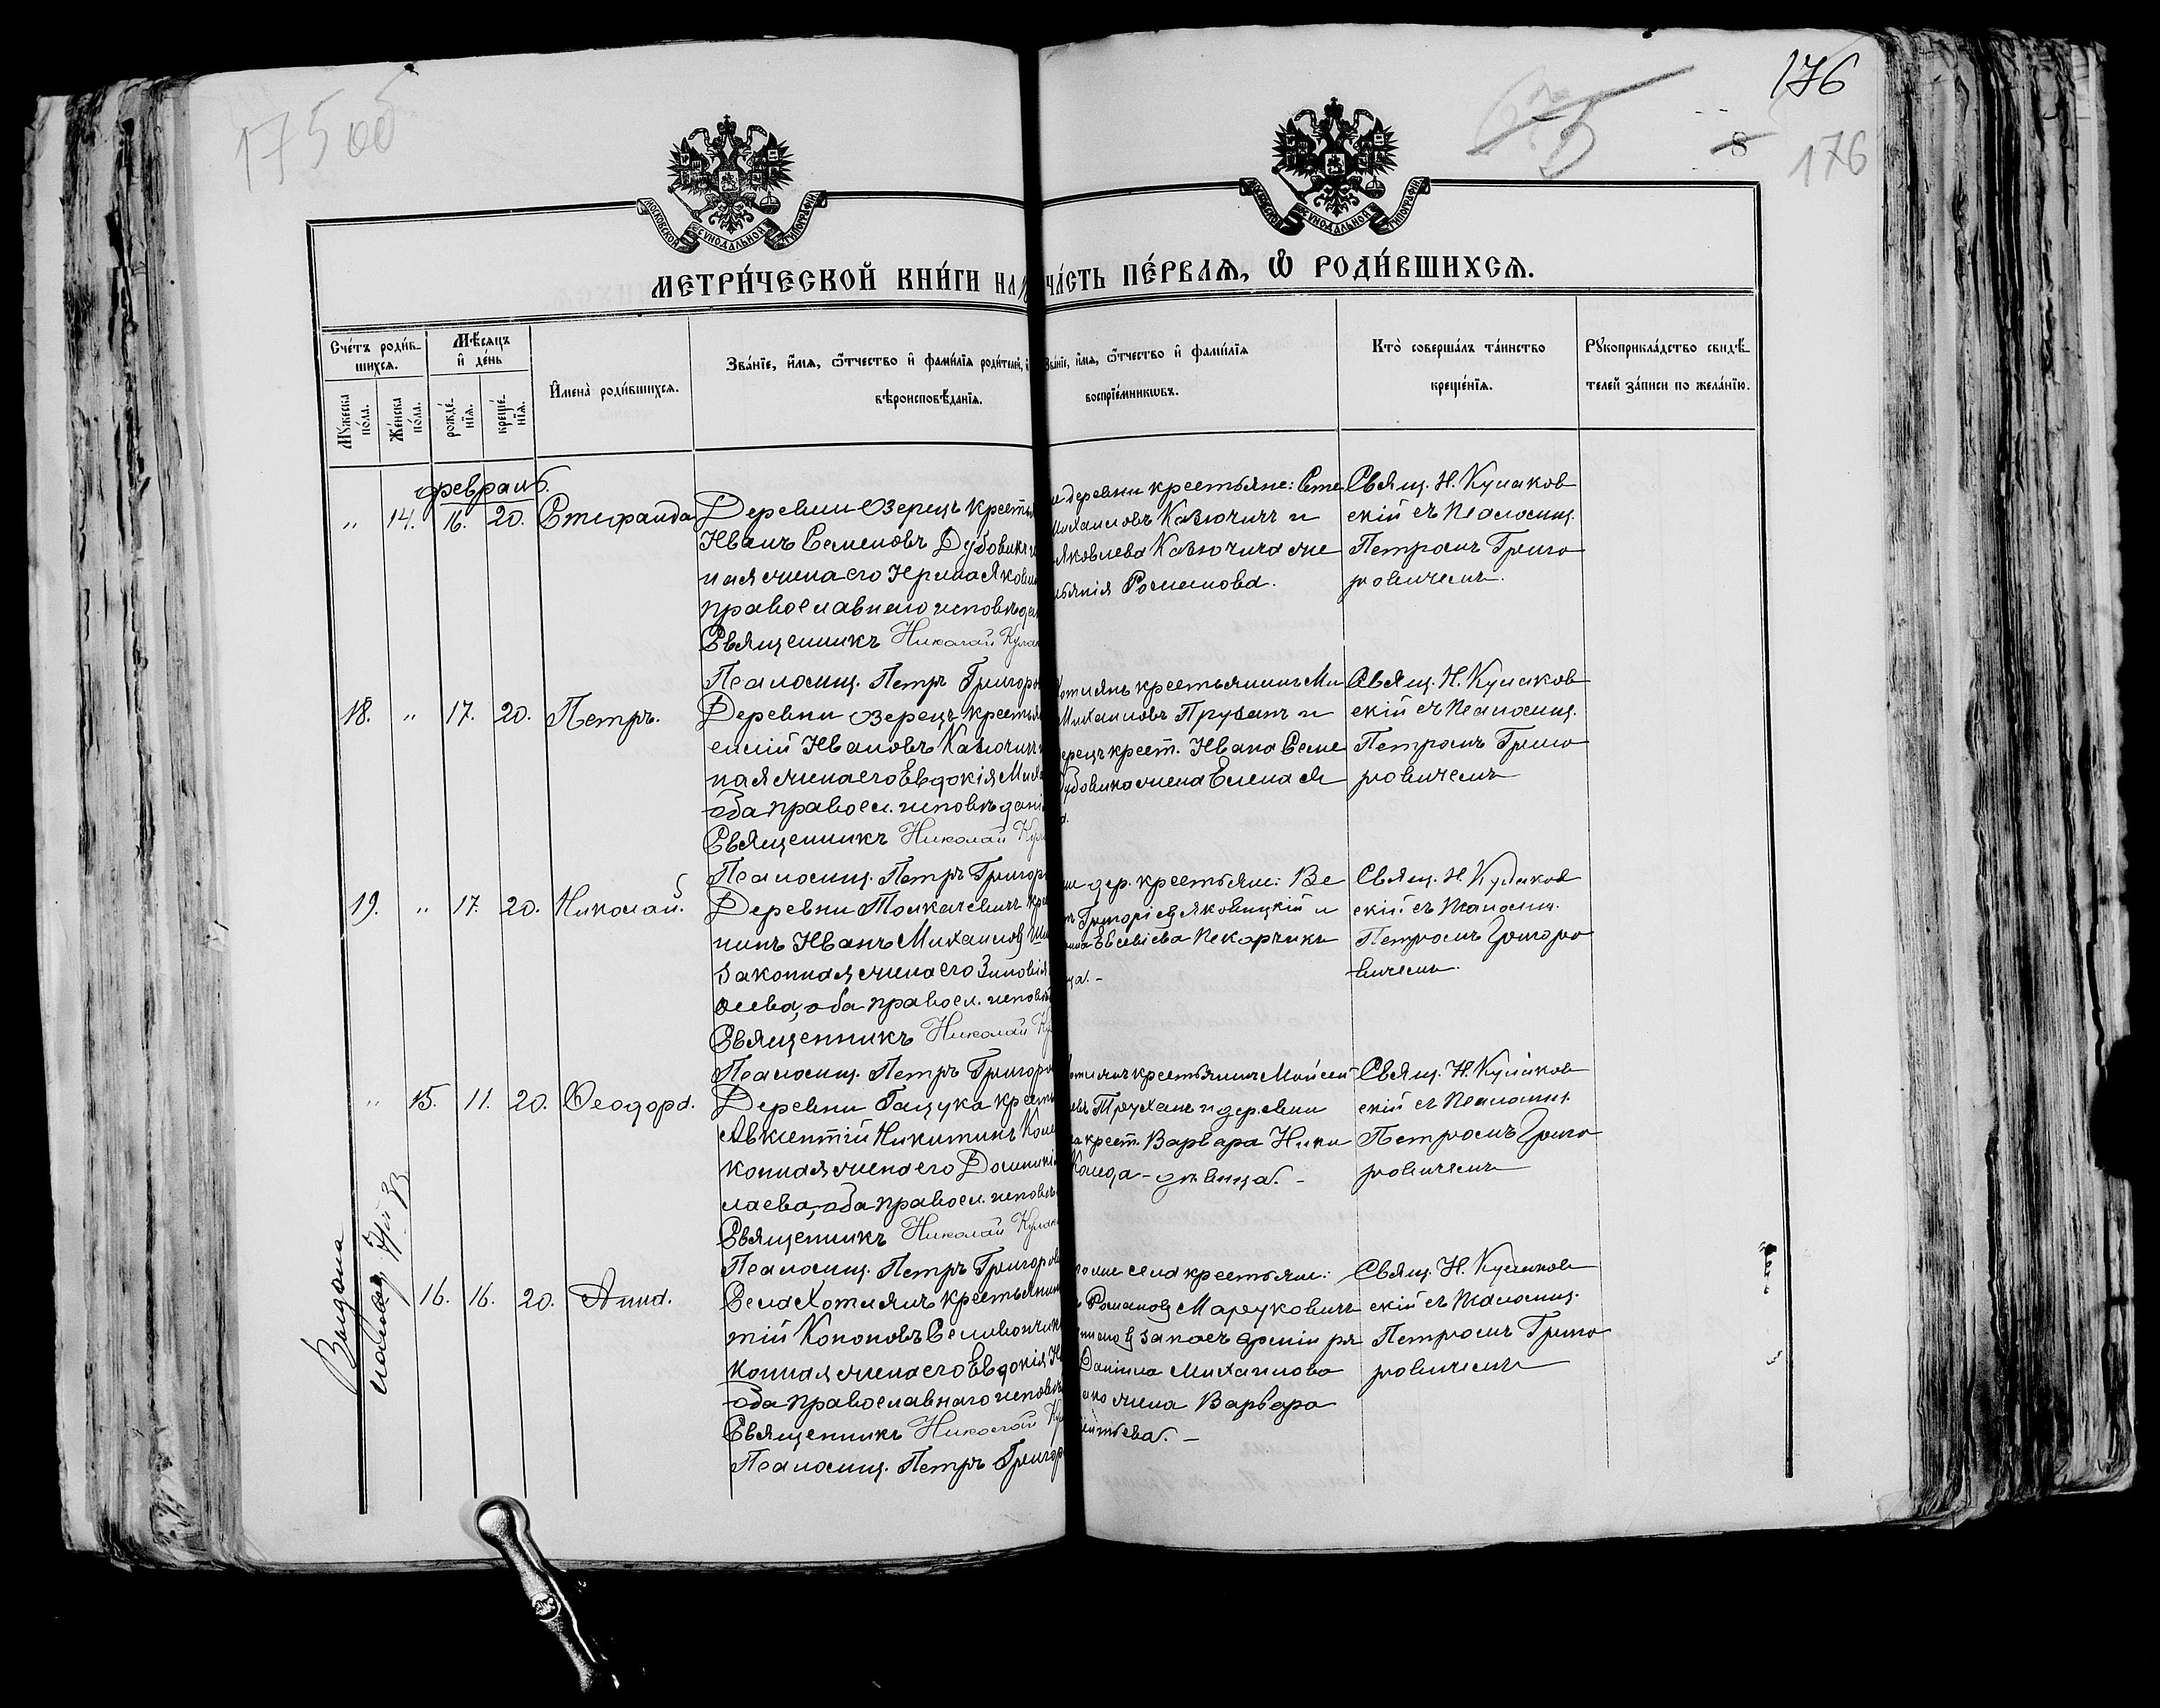 175 об
176
176
8
МОСКОВСКОЙ СѴНОДАЛЬНОЙ ТИПОГРАФІИ
МОСКОВСКОЙ СѴНОДАЛЬНОЙ ТИПОГРАФІИ
МЕТРИ́ЧЕСКОЙ КНИ́ГИ НА
ЧА́СТЬ ПЕ́РВАѦ, Ѿ РОДИ́ВШИХСѦ.
Сче́тъ роди́в-
шихсѧ.
Мѣ́сѧцъ
и҆ де́нь
Мꙋ́жеска
по́ла.
Же́нска
по́ла.
рожде́-
нїѧ.
креще́-
нїѧ.
И҆мена̀ роди́вшихсѧ.
Зва́нїе, и҆́мѧ, ѻ҆́тчество и҆ фами́лїѧ роди́телей, и҆
вѣроисповѣ́данїѧ.
Зва́нїе, и҆́мѧ, ѻ҆́тчество и҆ фами́лїѧ
воспрїе́мникѡвъ.
Кто̀ соверша́лъ та́инство
креще́нїѧ.
Рꙋкоприкла́дство свидѣ́-
телей за́писи по жела́нїю.
февраль.
" 14. 16. 20. Стефанида
Деревни Озерецъ крестья
Иванъ Семеновъ Дубовикъ и
ная жена его Ирина Яковл
православнаго исповѣдан
Священникъ Николай Кулак
Псаломщ. Петръ Григоро
и деревни крестьяне: Сте
Михаиловъ Казючичъ и
Яковлева Казючича же
Романова.
Свящ. Н. Кулаков
скій съ псаломщ.
Петромъ Григо
ровичемъ.
18. " 17. 20. Петръ.
Деревни Озерецъ крестья
Ивановъ Казючичъ
ная жена его Евдокія Миха
оба правосл. исповѣдані
Священникъ Николай Кул
Псаломщ. Петръ Григоро
крестьянинъ Ми
Михаиловъ Труханъ и
ерецъ крест. Ивана Семе
Дубовика жена Елена
Свящ. Н. Кулаков
скій съ псаломщ.
Петромъ Григо
ровичемъ
19. " 17. 20. Николай.
Деревни Толкачевичъ кре
нинъ Иванъ Михаилов
законная жена его Зиновія
оба правосл. исповѣ
Священникъ Николай Ку
Псаломщ. Петръ Григоро
дер. крестьяне: Ве
Григоріев Яковицкій и
Евсевіева Пекарчика
Свящ. Н. Кулаков
скій съ псаломщ.
Петромъ Григоро
вичемъ.
" 15. 11. 20. Ѳеодора.
Деревни Гацука крестья
Авксентій Никитинъ Кое
конная жена его Домникі
лаева, оба правосл. исповѣ
Священникъ Николай Кулак
Псаломщ. Петръ Григоров
крестьянинъ Моисей
Труханъ и деревни
крест. Варвара Ники
дѣвица. -
Свящ. Н. Кулаков
скій съ псаломщ.
Петромъ Григо
ровичемъ
Выдана
16. 16. 20. Анна.
Села Хотлянъ крестьянин
тій Кононовъ Селивончик
конная жена его Евдокія
оба православнаго исповѣ
Священникъ Николай Кул
Псаломщ. Петръ Григор
села крестьяне:
Романов Марукович
запасъ арміи ря
Даніила Михаилова
жена Варвара
Свящ. Н. Кулаков
скій съ псаломщ.
Петромъ Григо
ровичемъ